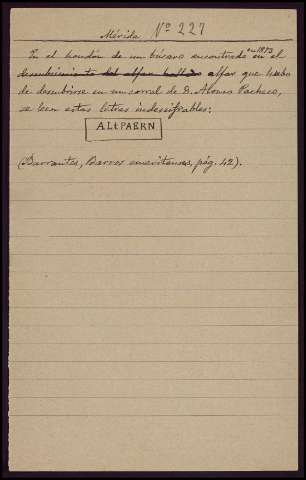 Mérida Nº 227
En el hondón de un búcaro encontrado en 1893 en el
descubrimiento del alfar hallado alfar que hubo
de descubrirse en un corral de D. Alonso Pacheco,
se leen estas letras indescifrables:
ALtPAERN
(Barrantes, Barros emeritenses, pág. 42).